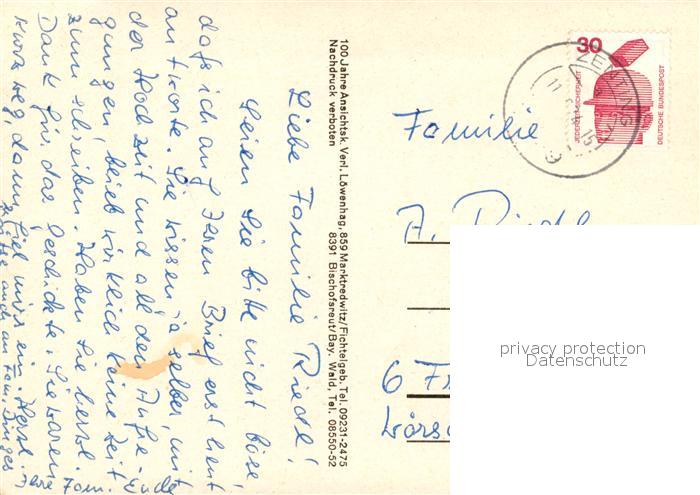 Liebe Familie Riedl!
Seien Sie bitte nicht böse,
daß ich auf Ihren Brief erst heut
antworte. Sie wissen ja selber, mit
der Hochzeit und all den Aufre-
gungen, blieb wirklich keine Zeit
zum schreiben. Haben Sie herzl.
Dank für das Geschickte. Sie waren
kurz weg, dann fiel mir ein. Herzl.
Grüße auch an Fam.
Ihre Fam. Ende
100 Jahre Ansichtsk. Verl. Löwenhag, 859 Marktredwitz/Fichtelgeb. Tel. 09231-2475
Nachdruck verboten 8391 Bischofsreut/Bay. Wald, Tel. 08550-52
30
JEDERZEIT SICHERHEIT
DEUTSCHE BUNDESPOST
ZENTING
Familie
A. Riedl
6 F
privacy protection
Datenschutz